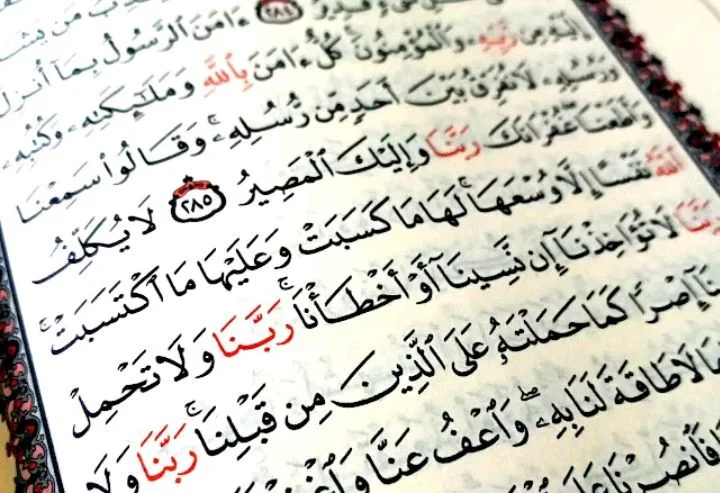 مَن يَشَا
قَدِيرٌ ٢٨٤ ءَامَنَ ٱلرَّسُولُ بِمَآ أُنزِلَ
إِلَيْهِ مِن رَّبِّهِۦ وَٱلْمُؤْمِنُونَۚ كُلٌّ ءَامَنَ بِٱللَّهِ وَمَلَٰٓئِكَتِهِۦ وَكُتُبِهِۦ
وَرُسُلِهِۦ لَا نُفَرِّقُ بَيْنَ أَحَدٍ مِّن رُّسُلِهِۦۚ وَقَالُوا۟ سَمِعْنَا
وَأَطَعْنَاۖ غُفْرَانَكَ رَبَّنَا وَإِلَيْكَ ٱلْمَصِيرُ ٢٨٥ لَا يُكَلِّفُ
ٱللَّهُ نَفْسًا إِلَّا وُسْعَهَاۚ لَهَا مَا كَسَبَتْ وَعَلَيْهَا مَا ٱكْتَسَبَتْۗ
رَبَّنَا لَا تُؤَاخِذْنَآ إِن نَّسِينَآ أَوْ أَخْطَأْنَاۚ رَبَّنَا وَلَا تَحْمِلْ
نَآ إِصْرًا كَمَا حَمَلْتَهُۥ عَلَى ٱلَّذِينَ مِن قَبْلِنَاۚ رَبَّنَا وَلَا
مَا لَا طَاقَةَ لَنَا بِهِۦۖ وَٱعْفُ عَنَّا
فَٱنصُرْنَا عَلَى